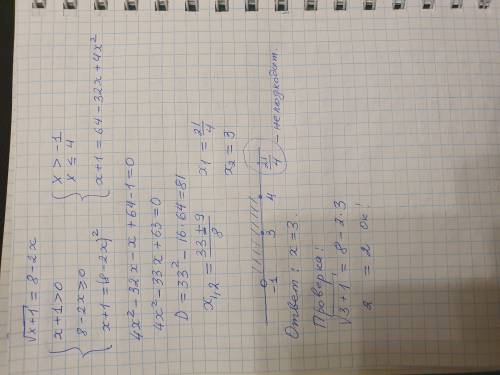 √x+1 = 8-2x
{ x+1>0
8-2x≥0
x+1=(8-2x)²
{ x>-1
x≤4
x+1=64-32x+4x²
4x²-32x-x+64-1=0
4x²-33x+63=0
D=33²-16·64=81
x₁,₂ = (33±9)/8
x₁ = 21/4
x₂ = 3
-1 3 4 21/4 - не подходит.
Ответ: x=3.
Проверка:
√3+1 = 8-2·3
2 = 2 ок!